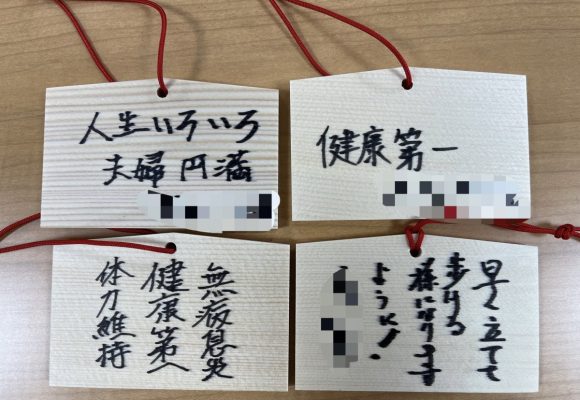 人生いろいろ
夫婦円満
健康第一
無病息災
健康第一
体力維持
早く立てて
歩ける
様になります
ように!